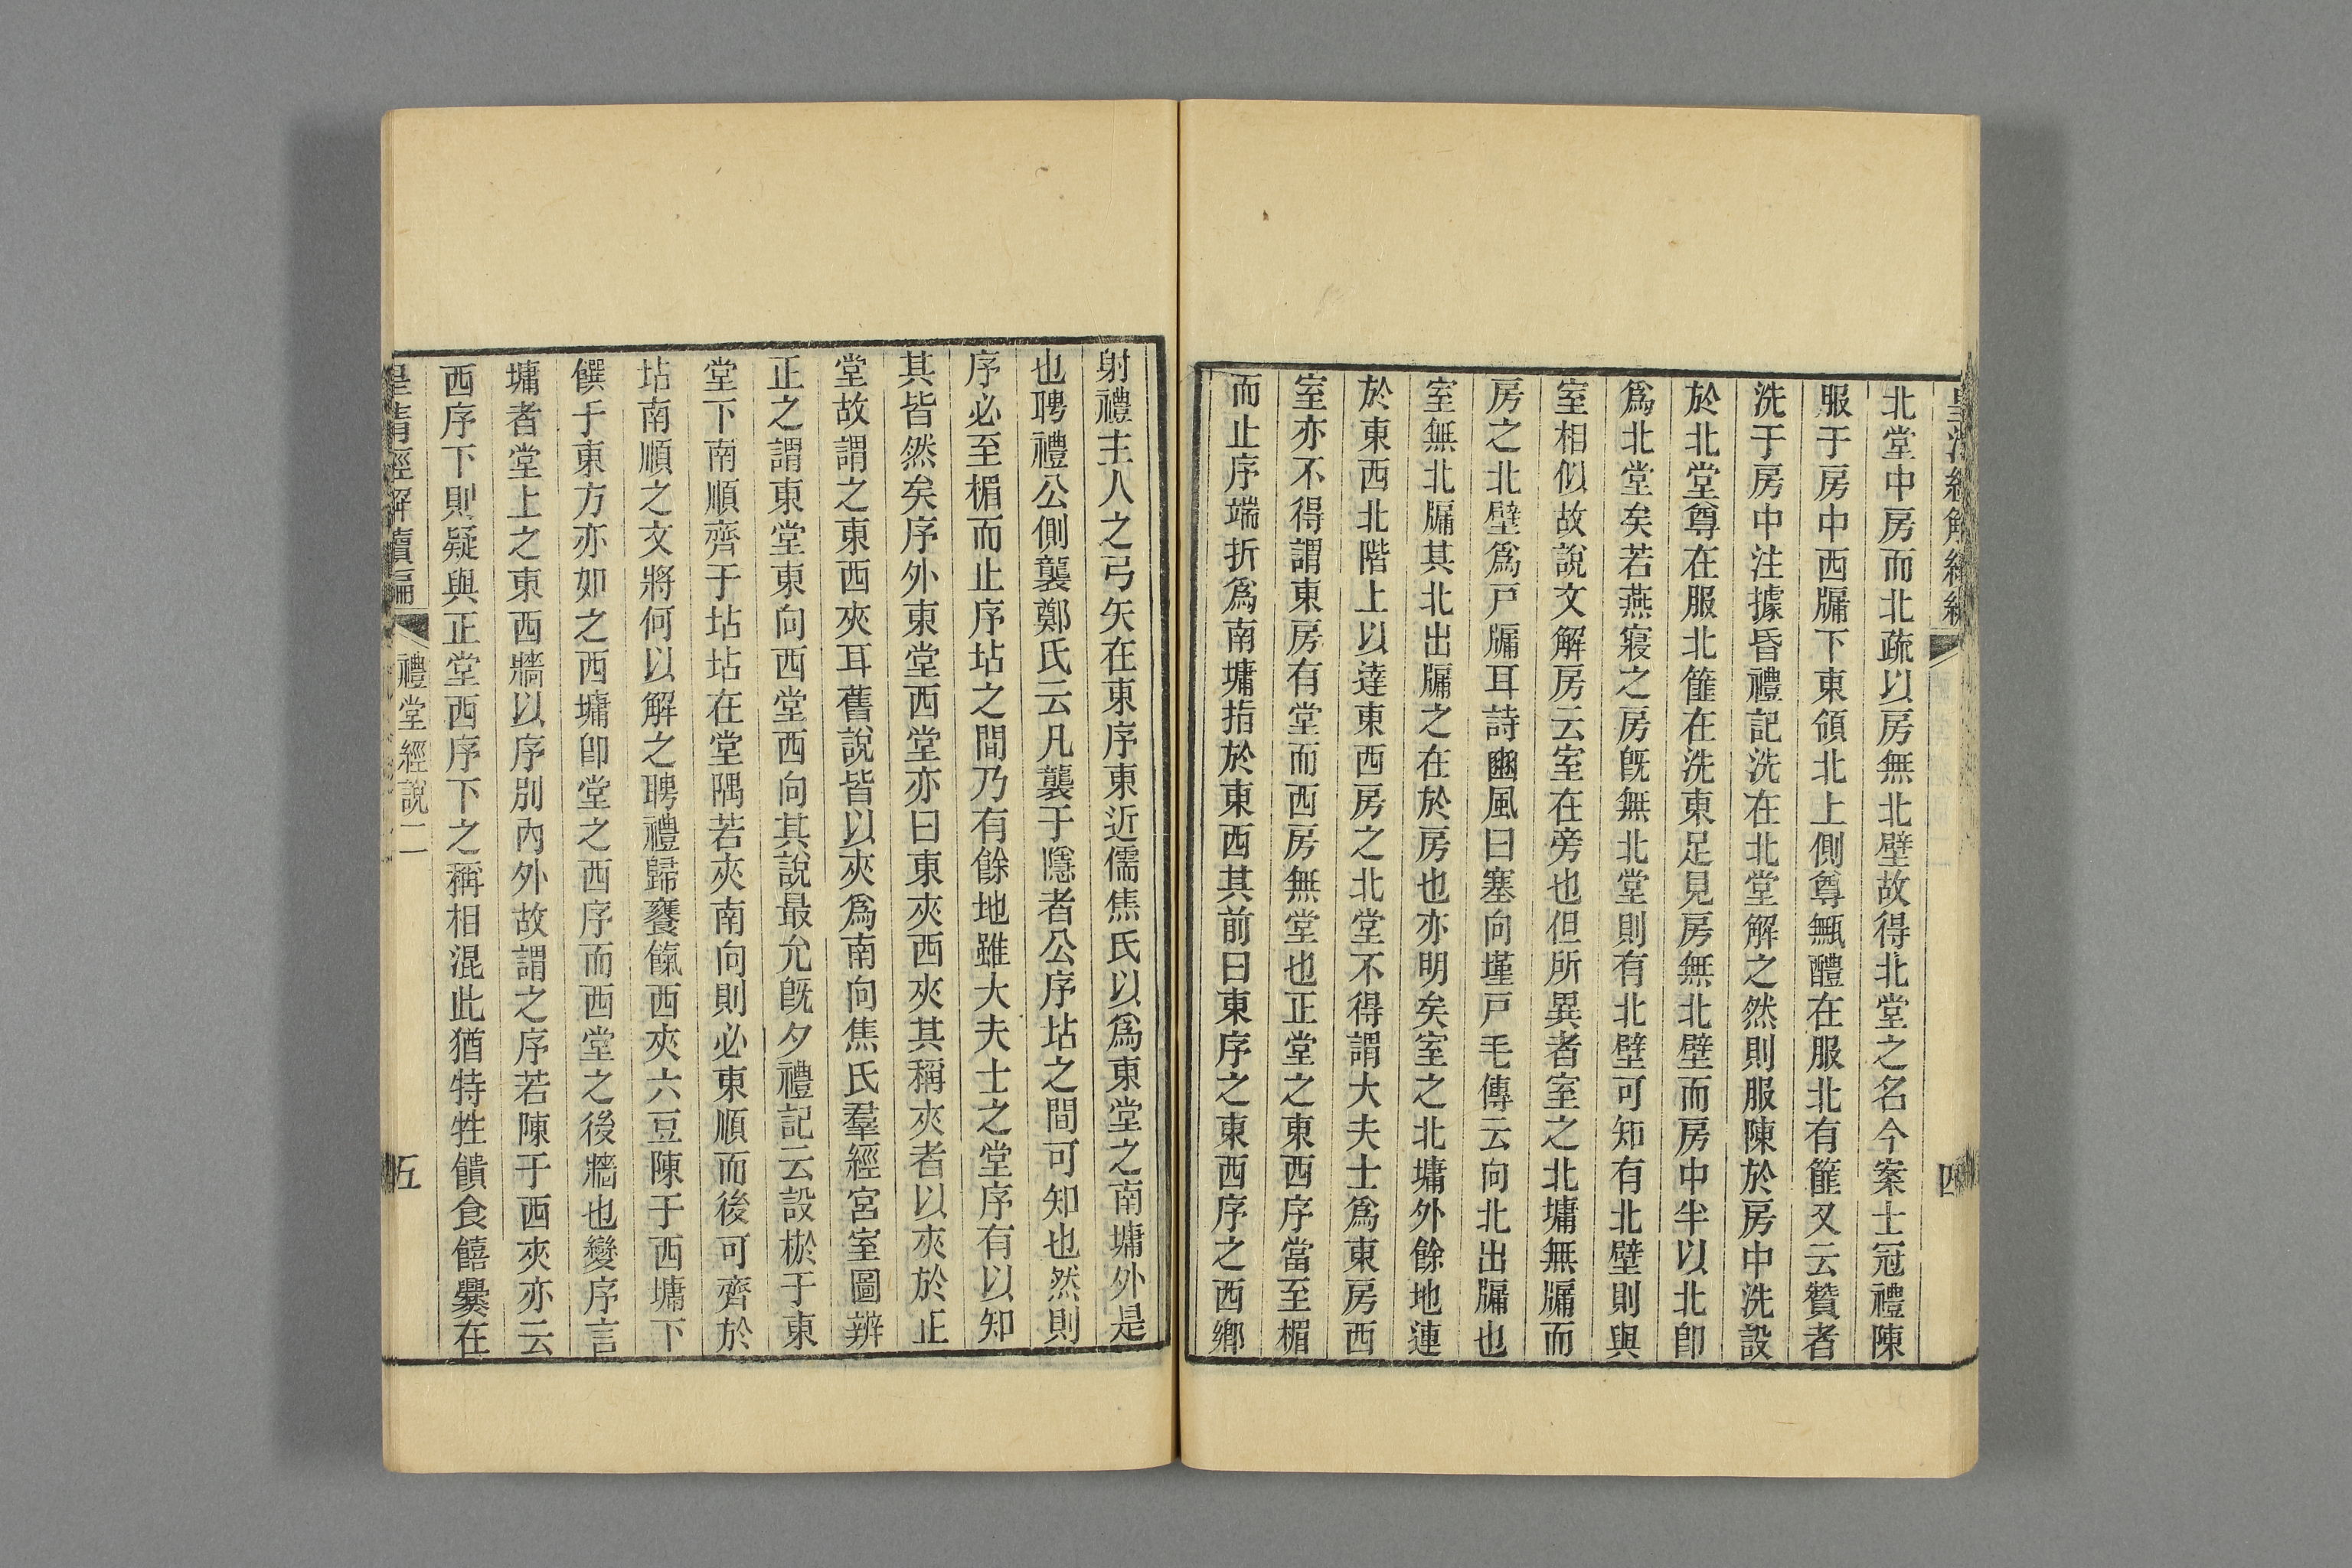 北堂中房而北疏以房無北壁故得北堂之名今案士冠禮陳
服于房中西牖下東領北上側尊甒醴在服北有篚又云贊者
洗于房中注據昏禮記洗在北堂解之然則服陳於房中洗設
於北堂尊在服北篚在洗東足見房無北壁而房中半以北卽
爲北堂矣若燕寢之房旣無北堂則有北壁可知有北壁則與
室相似故說文解房云室在旁也但所異者室之北墉無牖而
房之北壁爲戸牖耳詩豳風曰塞向墐戸毛傳云向北出牖也
室無北牖其北出牖之在於房也亦明矣室之北墉外餘地連
於東西北階上以達東西房之北堂不得謂大夫士爲東房西
室亦不得謂東房有堂而西房無堂也正堂之東西序當至楣
而止序端折爲南墉指於東西其前曰東序之東西序之西鄕
射禮主人之弓矢在東序東近儒焦氏以爲東堂之南墉外是
也聘禮公側襲鄭氏云凡襲于隱者公序坫之間可知也然則
序必至楣而止序坫之間乃有餘地雖大夫士之堂序有以知
其皆然矣序外東堂西堂亦曰東夾西夾其稱夾者以夾於正
堂故謂之東西夾耳舊說皆以夾爲南向焦氏羣經宮室圖辨
正之謂東堂東向西堂西向其說最允旣夕禮記云設棜于東
堂下南順齊于坫坫在堂隅若夾南向則必東順而後可齊於
坫南順之文將何以解之聘禮歸饔餼西夾六豆陳于西墉下
饌于東方亦如之西墉卽堂之西序而西堂之後牆也變序言
墉者堂上之東西牆以序別內外故謂之序若陳于西夾亦云
西序下則疑與正堂西序下之稱相混此猶特牲饋食饎爨在
皇清經解續編
禮堂經說二
五